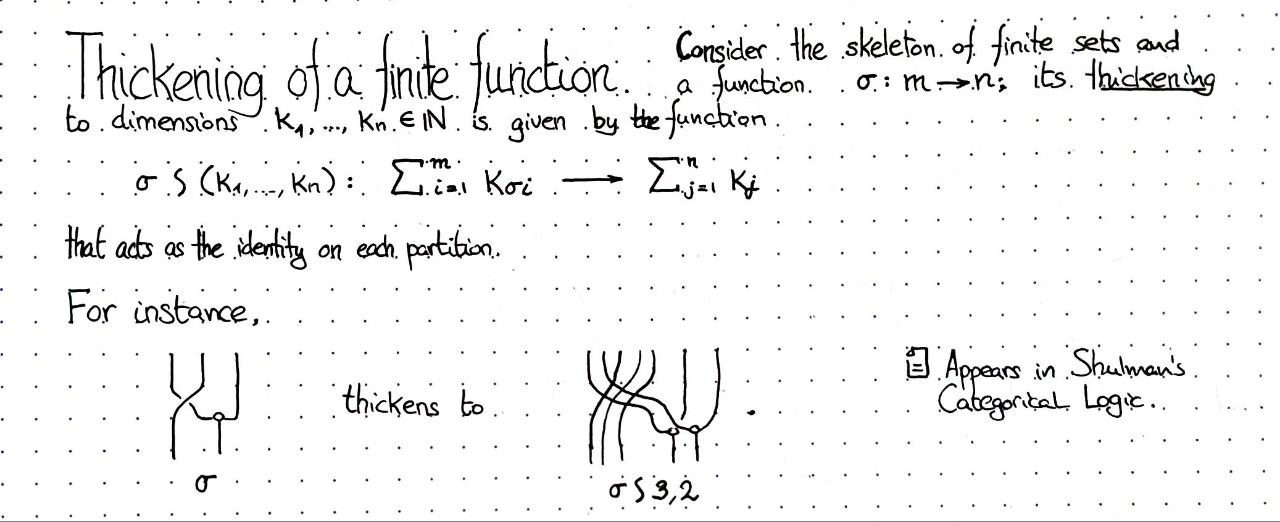 Thickening of a finite function. Consider the skeleton of finite sets and
a function σ: m → n; its thickening
to dimensions k₁, ..., kₙ ∈ ℕ is given by the function
σ ≀ (k₁, ..., kₙ): ∑ᵢ₌₁ᵐ k_σi ⟶ ∑ⱼ₌₁ⁿ kⱼ
that acts as the identity on each partition.
For instance,
thickens to .
σ
σ ≀ 3,2
Appears in Shulman's
Categorical Logic.